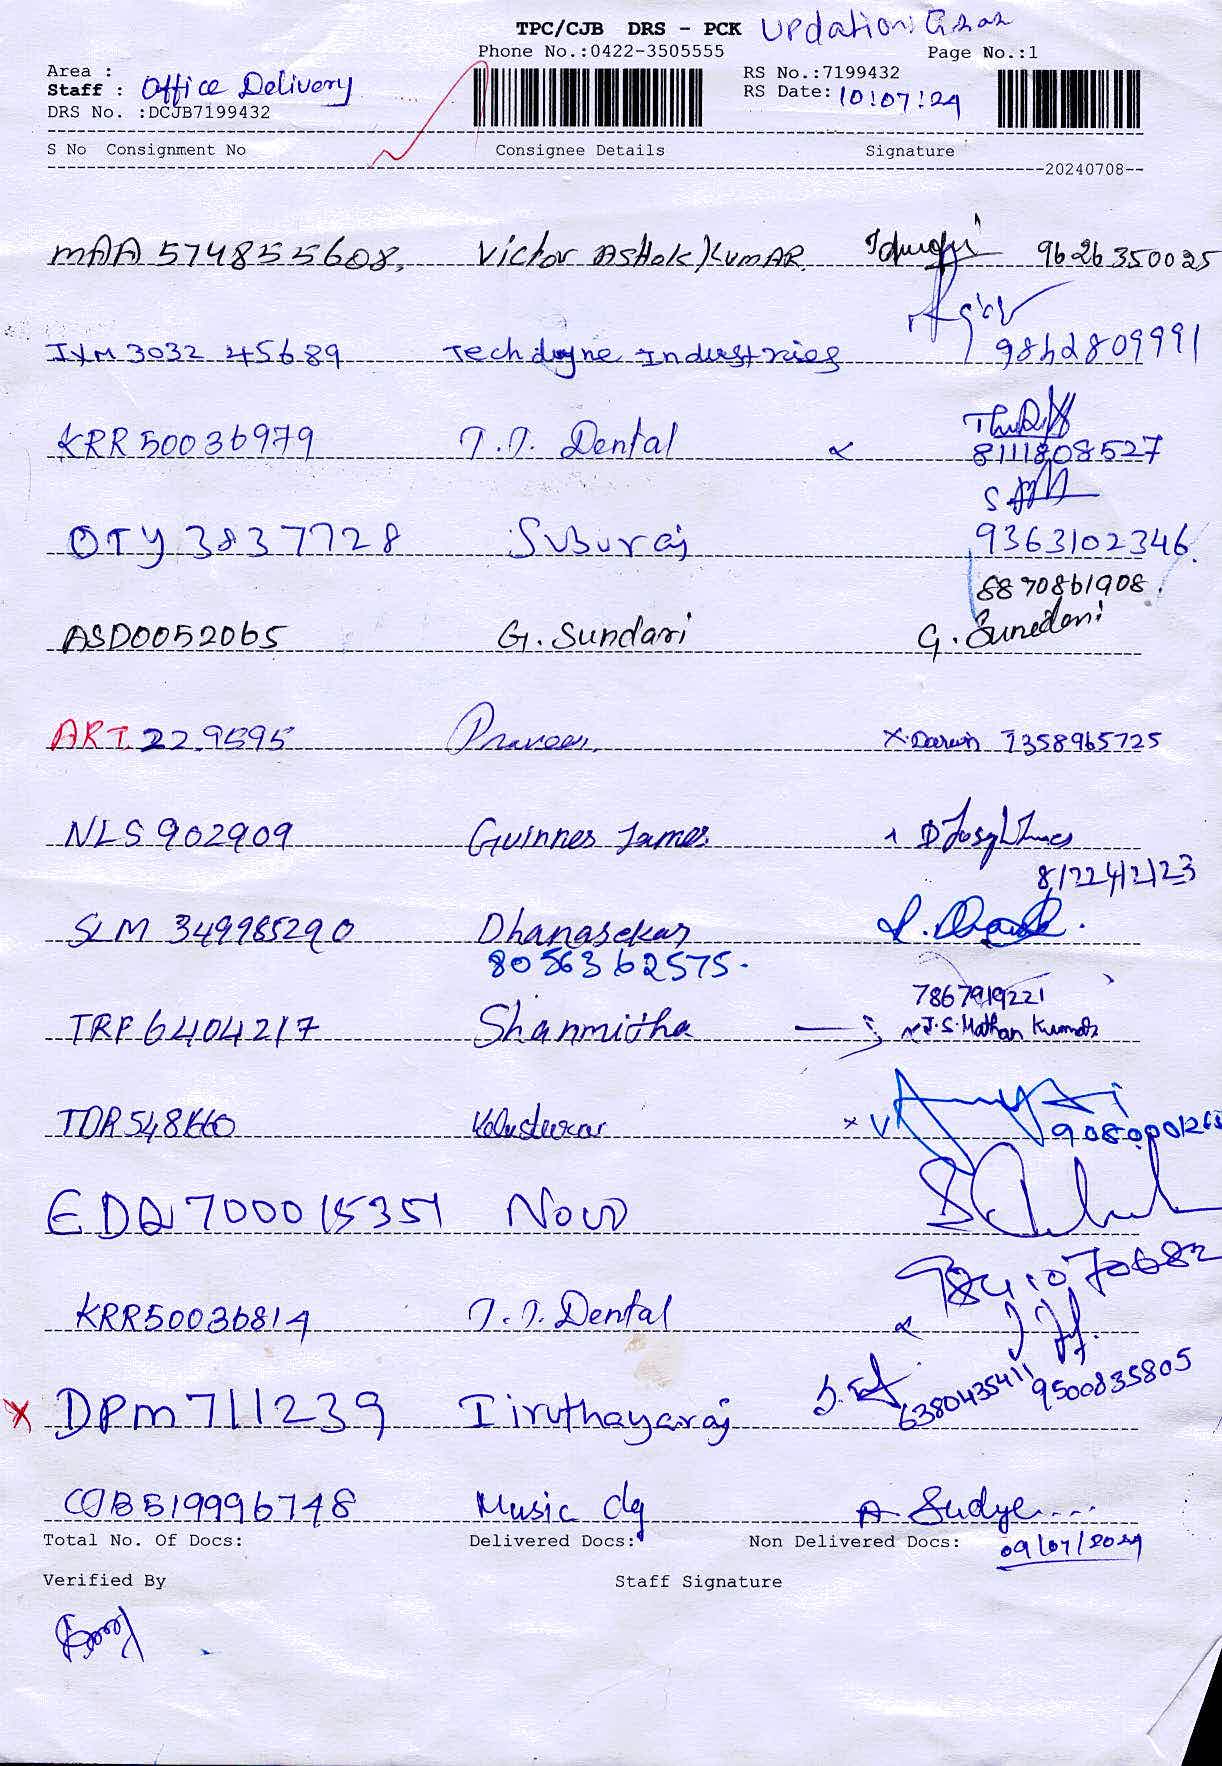 TPC/CJB DRS - PCK Updation
Phone No.:0422-3505555 Page No.:1
Area :
Staff : Office Delivery
RS No.:7199432
RS Date: 10:07:24
DRS No. :DCJB7199432
S No Consignment No Consignee Details Signature
20240708
MAA 5748555608, Victor Ashok Kumar 9626350025
IXM 3032 45689 Techdyne Industries 9862809991
KRR 50036979 J.J. Dental 8111808527
OTY 3837728 Suburaj 9363102346
8870861908.
ASD0052065 G. Sundari G. Sundari
ART 229595 Praveen x Darwin 7358965725
NLS 902909 Guinnes James D Joseph James
8122412123
SLM 349985290 Dhanasekar
8056362575.
7867919221
TRP 6404217 Shanmitha J.S. Mathan Kumar
TDR 548660
EDQ 700015351
KRR50036814 J.J. Dental
DPM 711239 Iruthayaraj 6380435411 9500835805
COB519996748 Music dg A. Sudye
Total No. Of Docs: Delivered Docs: Non Delivered Docs: 09/07/2024
Verified By Staff Signature